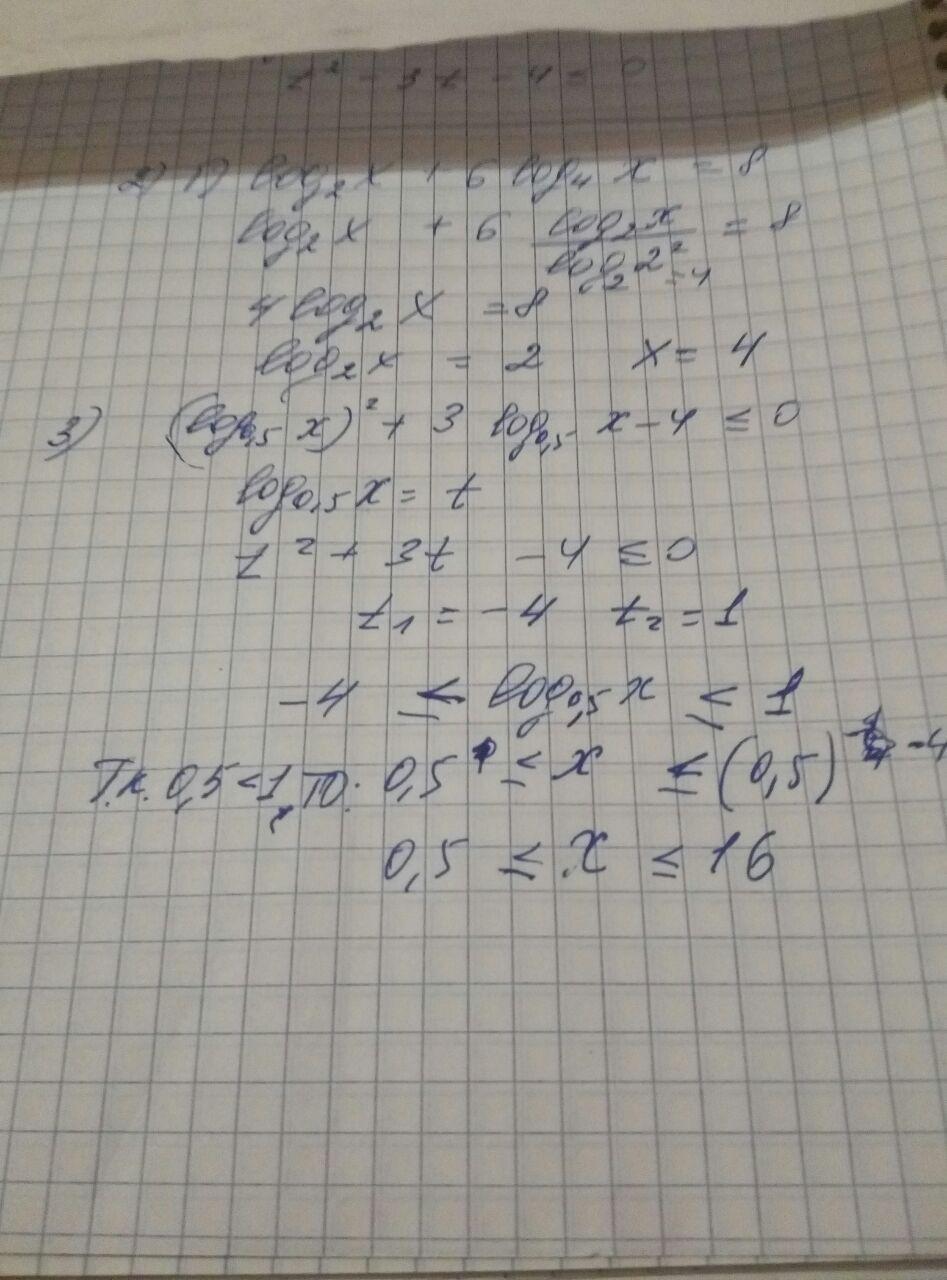 t² - 3t - 4 = 0
2) 1) log₂x + 6 log₄ x = 8
log₂x + 6 log₂x / log₂2² = 8
= 4
4 log₂x = 8
log₂x = 2 x = 4
3) (log₀,₅ x)² + 3 log₀,₅ x - 4 ≤ 0
log₀,₅x = t
t² + 3t - 4 ≤ 0
t₁ = -4 t₂ = 1
-4 ≤ log₀,₅x ≤ 1
Т.к. 0,5 < 1, то: 0,5¹ ≤ x ≤ (0,5)⁻⁴
0,5 ≤ x ≤ 16